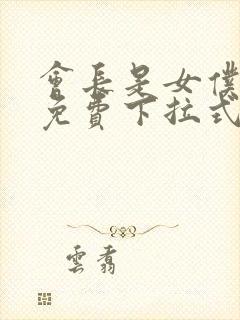 會長是女僕
免費下拉式
雲翥